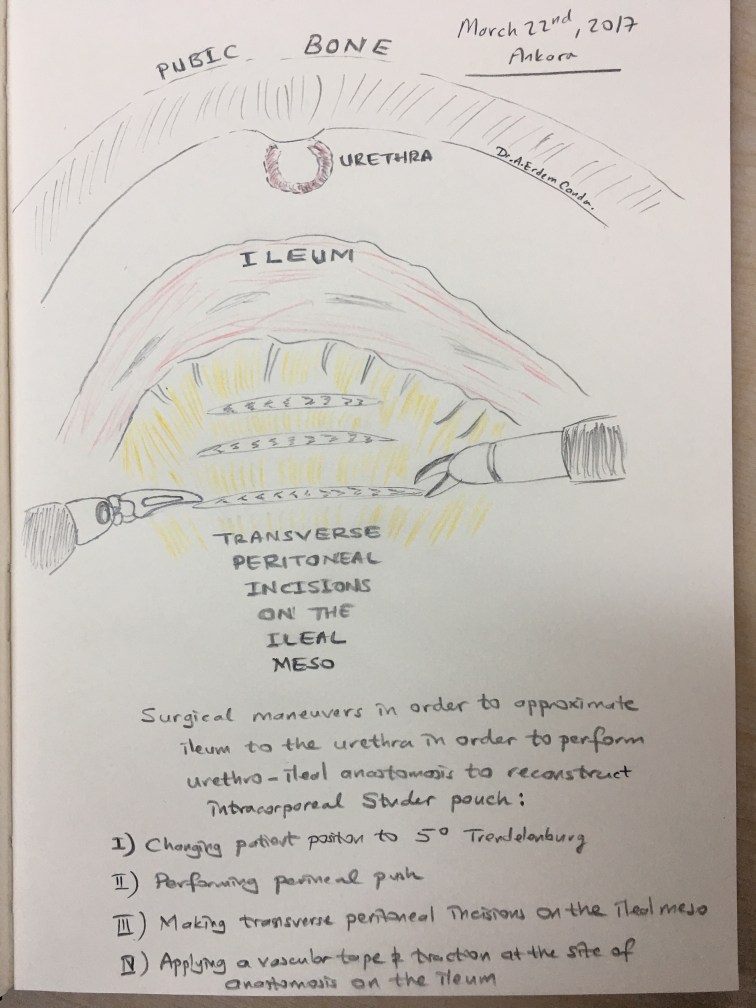 March 22nd, 2017
Ankara
PUBIC BONE
URETHRA
Dr. A. Erdem Canda.
ILEUM
TRANSVERSE
PERITONEAL
INCISIONS
ON THE
ILEAL
MESO
Surgical maneuvers in order to approximate
ileum to the urethra in order to perform
urethro-ileal anastomosis to reconstruct
intracorporeal Studer pouch:
I) Changing patient position to 5° Trendelenburg
II) Performing perineal push
III) Making transverse peritoneal incisions on the ileal meso
IV) Applying a vascular tape & traction at the site of
anastomosis on the ileum